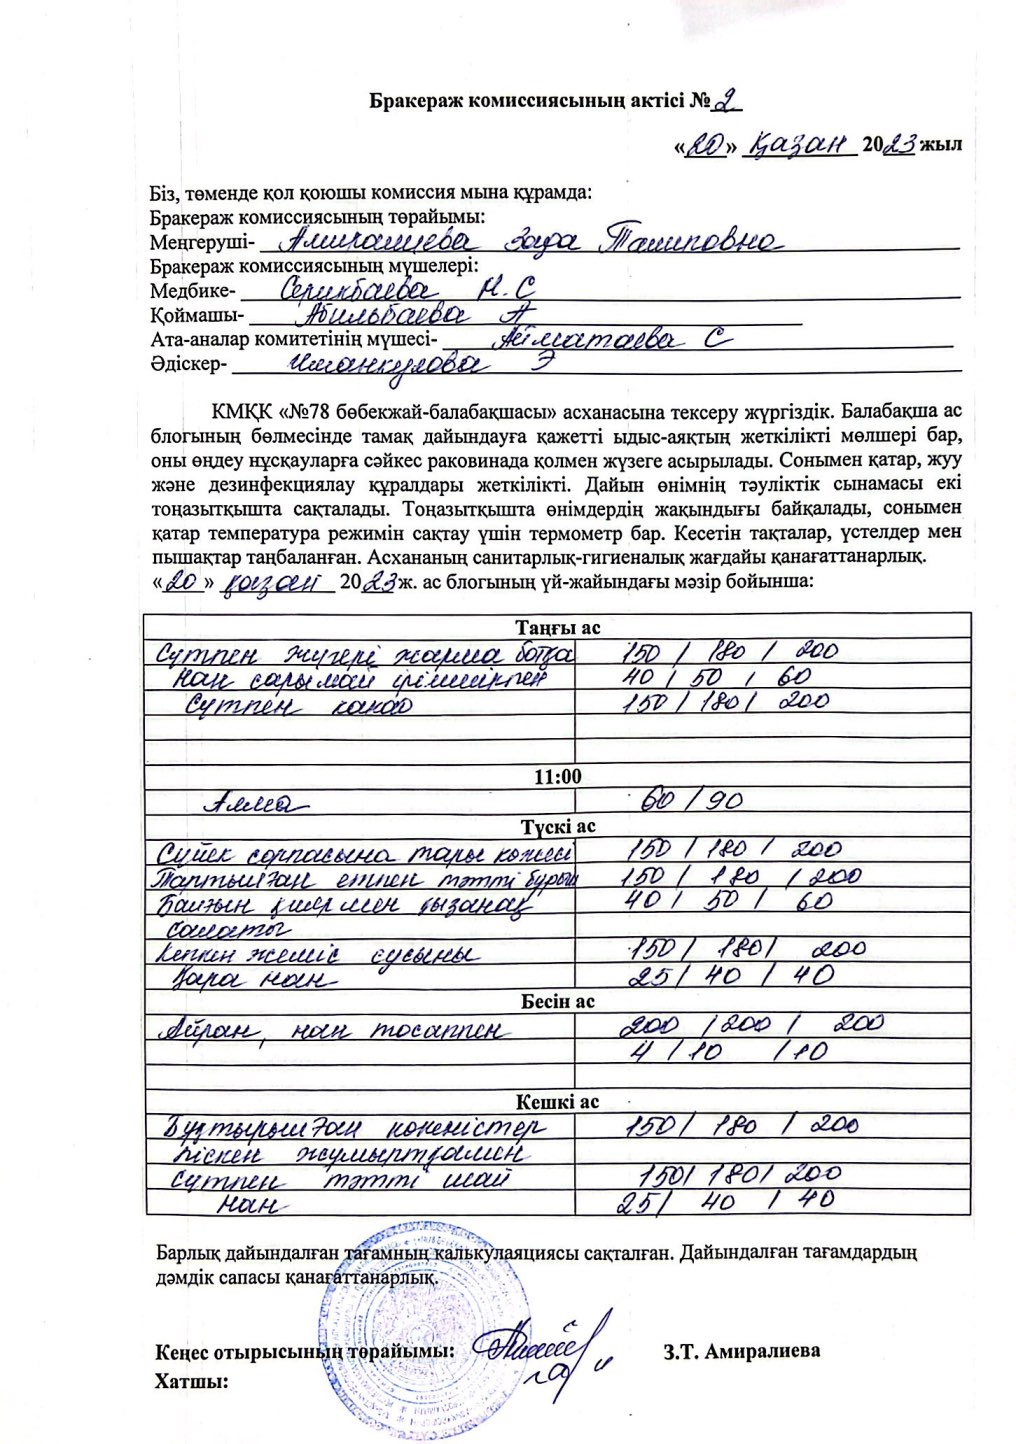 Бракераж комиссиясының актісі № 2
«20» Қазан 2023 жыл
Біз, төменде қол қоюшы комиссия мына құрамда:
Бракераж комиссиясының төрайымы:
Меңгеруші- Амиралиева Зауа Талиповна
Бракераж комиссиясының мүшелері:
Медбике- Серикбаева Н.С
Қоймашы- Абильбаева А
Ата-аналар комитетінің мүшесі- Айматаева С
Әдіскер- Иманкулова Э
КМҚК «№78 бөбекжай-балабақшасы» асханасына тексеру жүргіздік. Балабақша ас
блогының бөлмесінде тамақ дайындауға қажетті ыдыс-аяқтың жеткілікті мөлшері бар,
оны өңдеу нұсқауларға сәйкес раковинада қолмен жүзеге асырылады. Сонымен қатар, жуу
және дезинфекциялау құралдары жеткілікті. Дайын өнімнің тәуліктік сынамасы екі
тоңазытқышта сақталады. Тоңазытқышта өнімдердің жақындығы байқалады, сонымен
қатар температура режимін сақтау үшін термометр бар. Кесетін тақталар, үстелдер мен
пышақтар таңбаланған. Асхананың санитарлық-гигиеналық жағдайы қанағаттанарлық.
«20» қазан 2023 ж. ас блогының үй-жайындағы мәзір бойынша:
Таңғы ас
Сүтпен жүгері жарма ботқа 150 / 180 / 200
Нан сарымай ірімшікпен 40 / 50 / 60
Сүтпен какао 150 / 180 / 200
11:00
Алма 60 / 90
Түскі ас
Сүйек сорпасына тары көжесі 150 / 180 / 200
Тартылған етпен тәтті бұрыш 150 / 180 / 200
Балғын қиярмен қызанақ 40 / 50 / 60
салаты
Кепкен жеміс сусыны 150 / 180 / 200
Қара нан 25 / 40 / 40
Бесін ас
Айран, нан тосаппен 200 / 200 / 200
4 / 10 / 10
Кешкі ас
Бұқтырылған көкөністер 150 / 180 / 200
піскен жұмыртқамен
Сүтпен тәтті шай 150 / 180 / 200
Нан 25 / 40 / 40
Барлық дайындалған тағамның қалькулаяциясы сақталған. Дайындалған тағамдардың
дәмдік сапасы қанағаттанарлық.
Кеңес отырысының төрайымы: З.Т. Амиралиева
Хатшы: